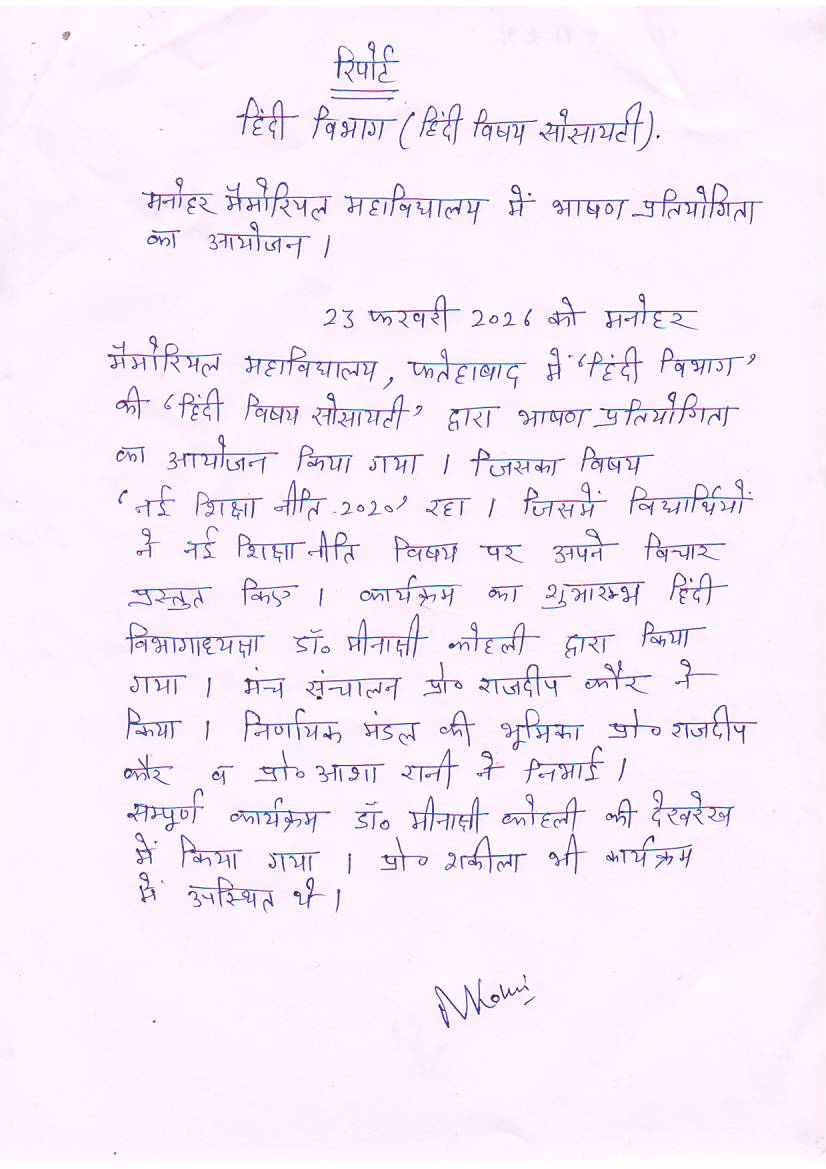 रिपोर्ट
हिंदी विभाग (हिंदी विषय सोसायटी).
मनोहर मैमोरियल महाविद्यालय में भाषण प्रतियोगिता
का आयोजन ।
23 फरवरी 2026 को मनोहर
मैमोरियल महाविद्यालय, फतेहाबाद में ‘हिंदी विभाग’
की ‘हिंदी विषय सोसायटी’ द्वारा भाषण प्रतियोगिता
का आयोजन किया गया । जिसका विषय
‘नई शिक्षा नीति-2020’ रहा । जिसमें विद्यार्थियों
ने नई शिक्षा नीति विषय पर अपने विचार
प्रस्तुत किए । कार्यक्रम का शुभारम्भ हिंदी
विभागाध्यक्षा डॉ० मीनाक्षी कोहली द्वारा किया
गया । मंच संचालन प्रो० राजदीप कौर ने
किया । निर्णायक मंडल की भूमिका प्रो० राजदीप
कौर व प्रो० आशा रानी ने निभाई ।
सम्पूर्ण कार्यक्रम डॉ० मीनाक्षी कोहली की देखरेख
में किया गया । प्रो० शकीला भी कार्यक्रम
में उपस्थित थे ।